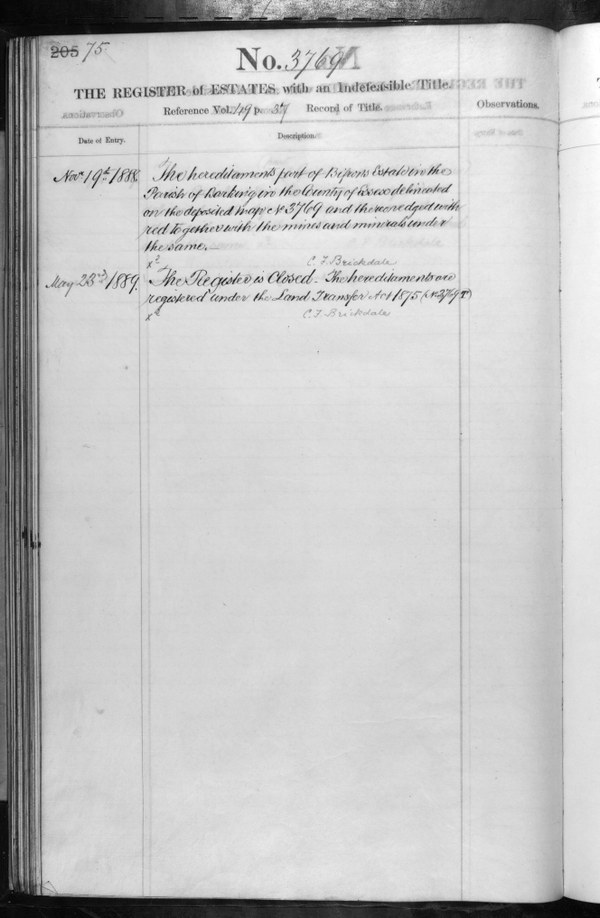 205 75
No. 3769
THE REGISTER of ESTATES with an Indefeasible Title.
Reference Vol. 149 p. 37 Record of Title.
Observations.
Date of Entry.
Description.
Novr. 19th 1888.
The hereditaments part of Bifrons Estate in the
Parish of Barking in the County of Essex delineated
on the deposited map No 3769 and thereon edged with
red together with the mines and minerals under
the same.
C F Brickdale
May 23rd 1889.
The Register is Closed. The hereditaments are
registered under the Land Transfer Act 1875 (No 3769
C F Brickdale